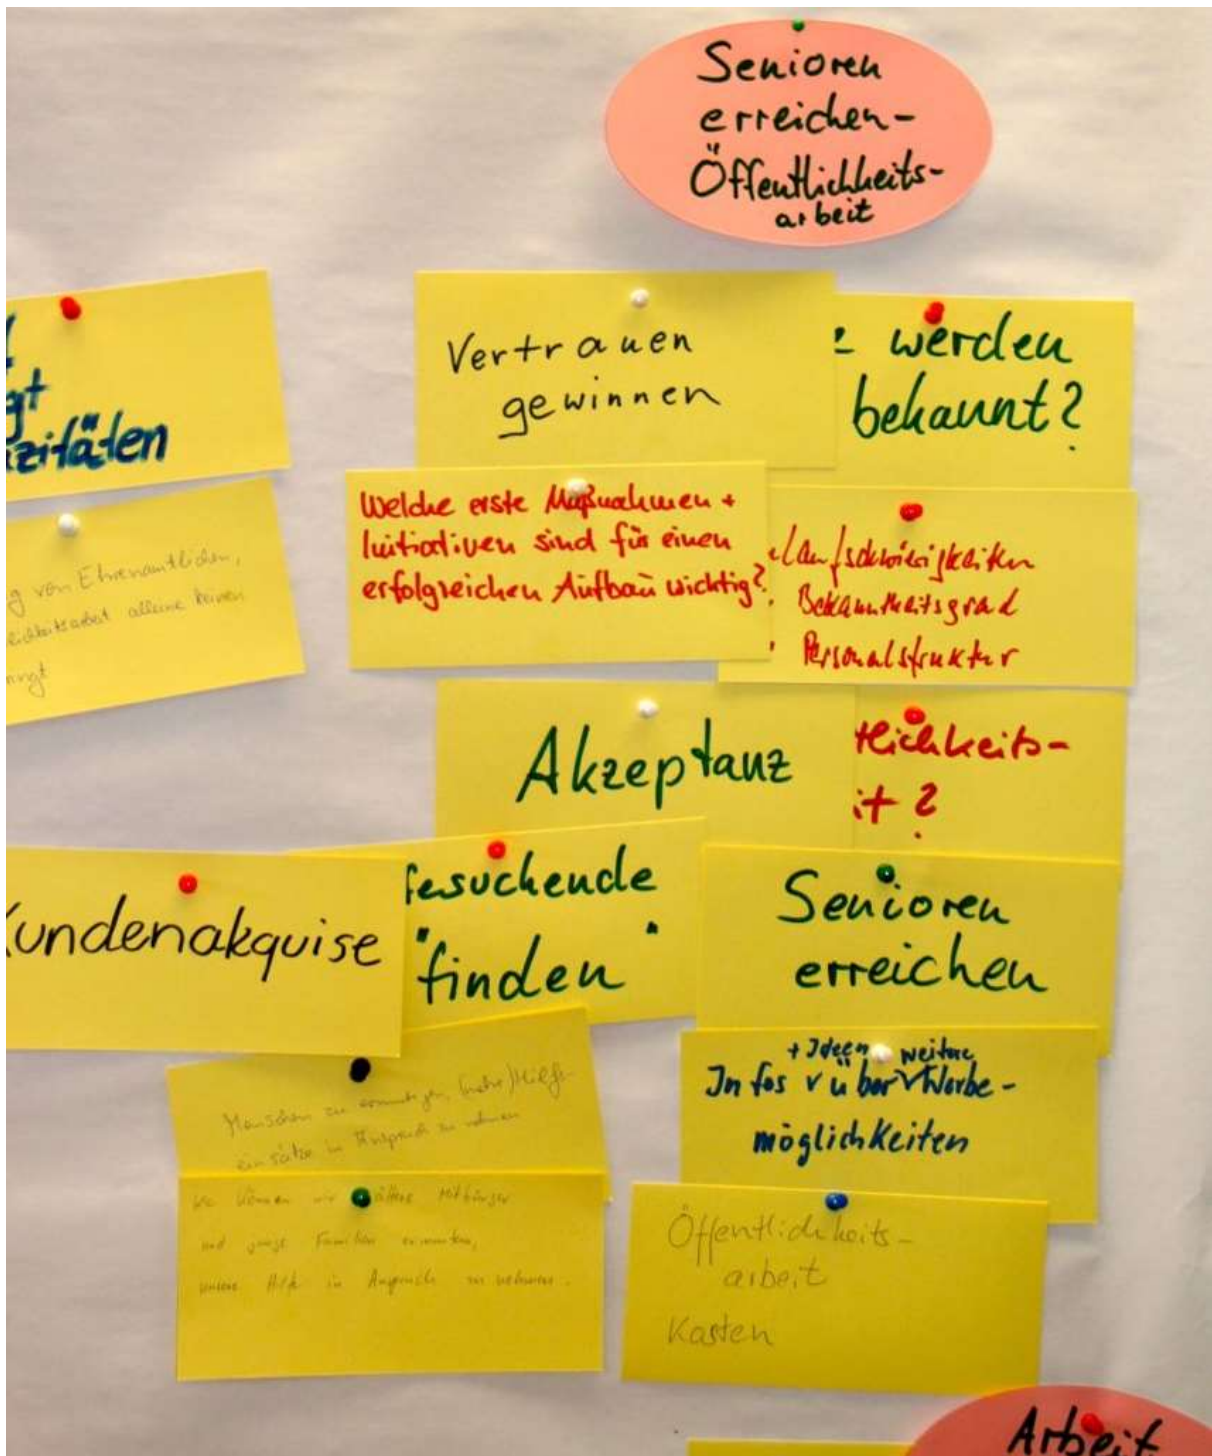 Senioren
erreichen-
Öffentlichkeits-
arbeit
zitäten
Vertrauen
gewinnen
werden
bekannt?
g von Ehrenamtlichen,
alleine keinen
Welche erste Maßnahmen +
Initiativen sind für einen
erfolgreichen Aufbau wichtig?
laufschwierigkeiten
Bekanntheitsgrad
Personalstruktur
Akzeptanz
tlichkeits-
it?
undenakquise
fesuchende
"finden"
Senioren
erreichen
+ Ideen weitere
Infos v über v Werbe-
möglichkeiten
Menschen zu ermutigen, (mehr) Hilfs-
einsätze in Anspruch zu nehmen
Wie können wir ältere Mitbürger
und junge Familien ermuntern,
unsere Hilfe in Anspruch zu nehmen.
Öffentlichkeits-
arbeit
Kasten
Arbeit